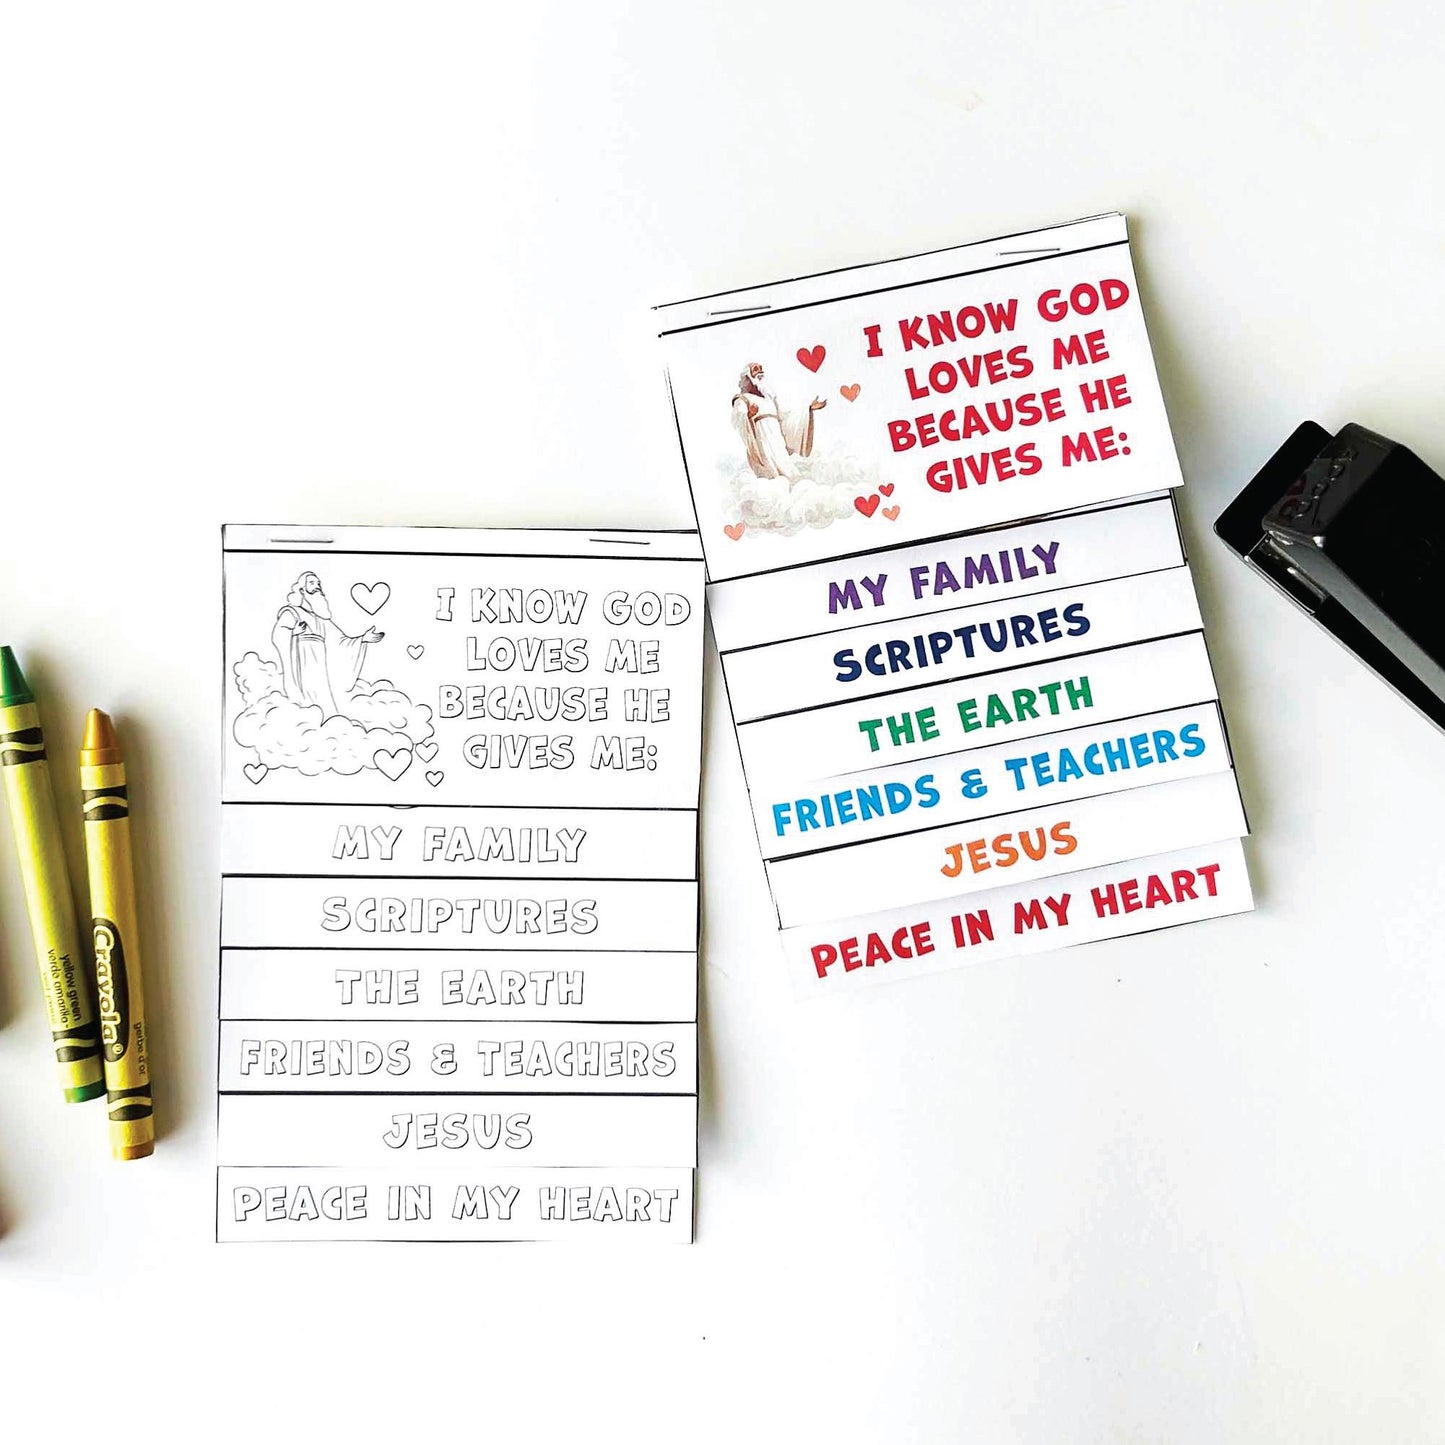 I KNOW GOD
LOVES ME
BECAUSE HE
GIVES ME:
MY FAMILY
SCRIPTURES
THE EARTH
FRIENDS & TEACHERS
JESUS
PEACE IN MY HEART
I KNOW GOD
LOVES ME
BECAUSE HE
GIVES ME:
MY FAMILY
SCRIPTURES
THE EARTH
FRIENDS & TEACHERS
JESUS
PEACE IN MY HEART
yellow green
verde amarillo
Crayola®
gerbe d'or